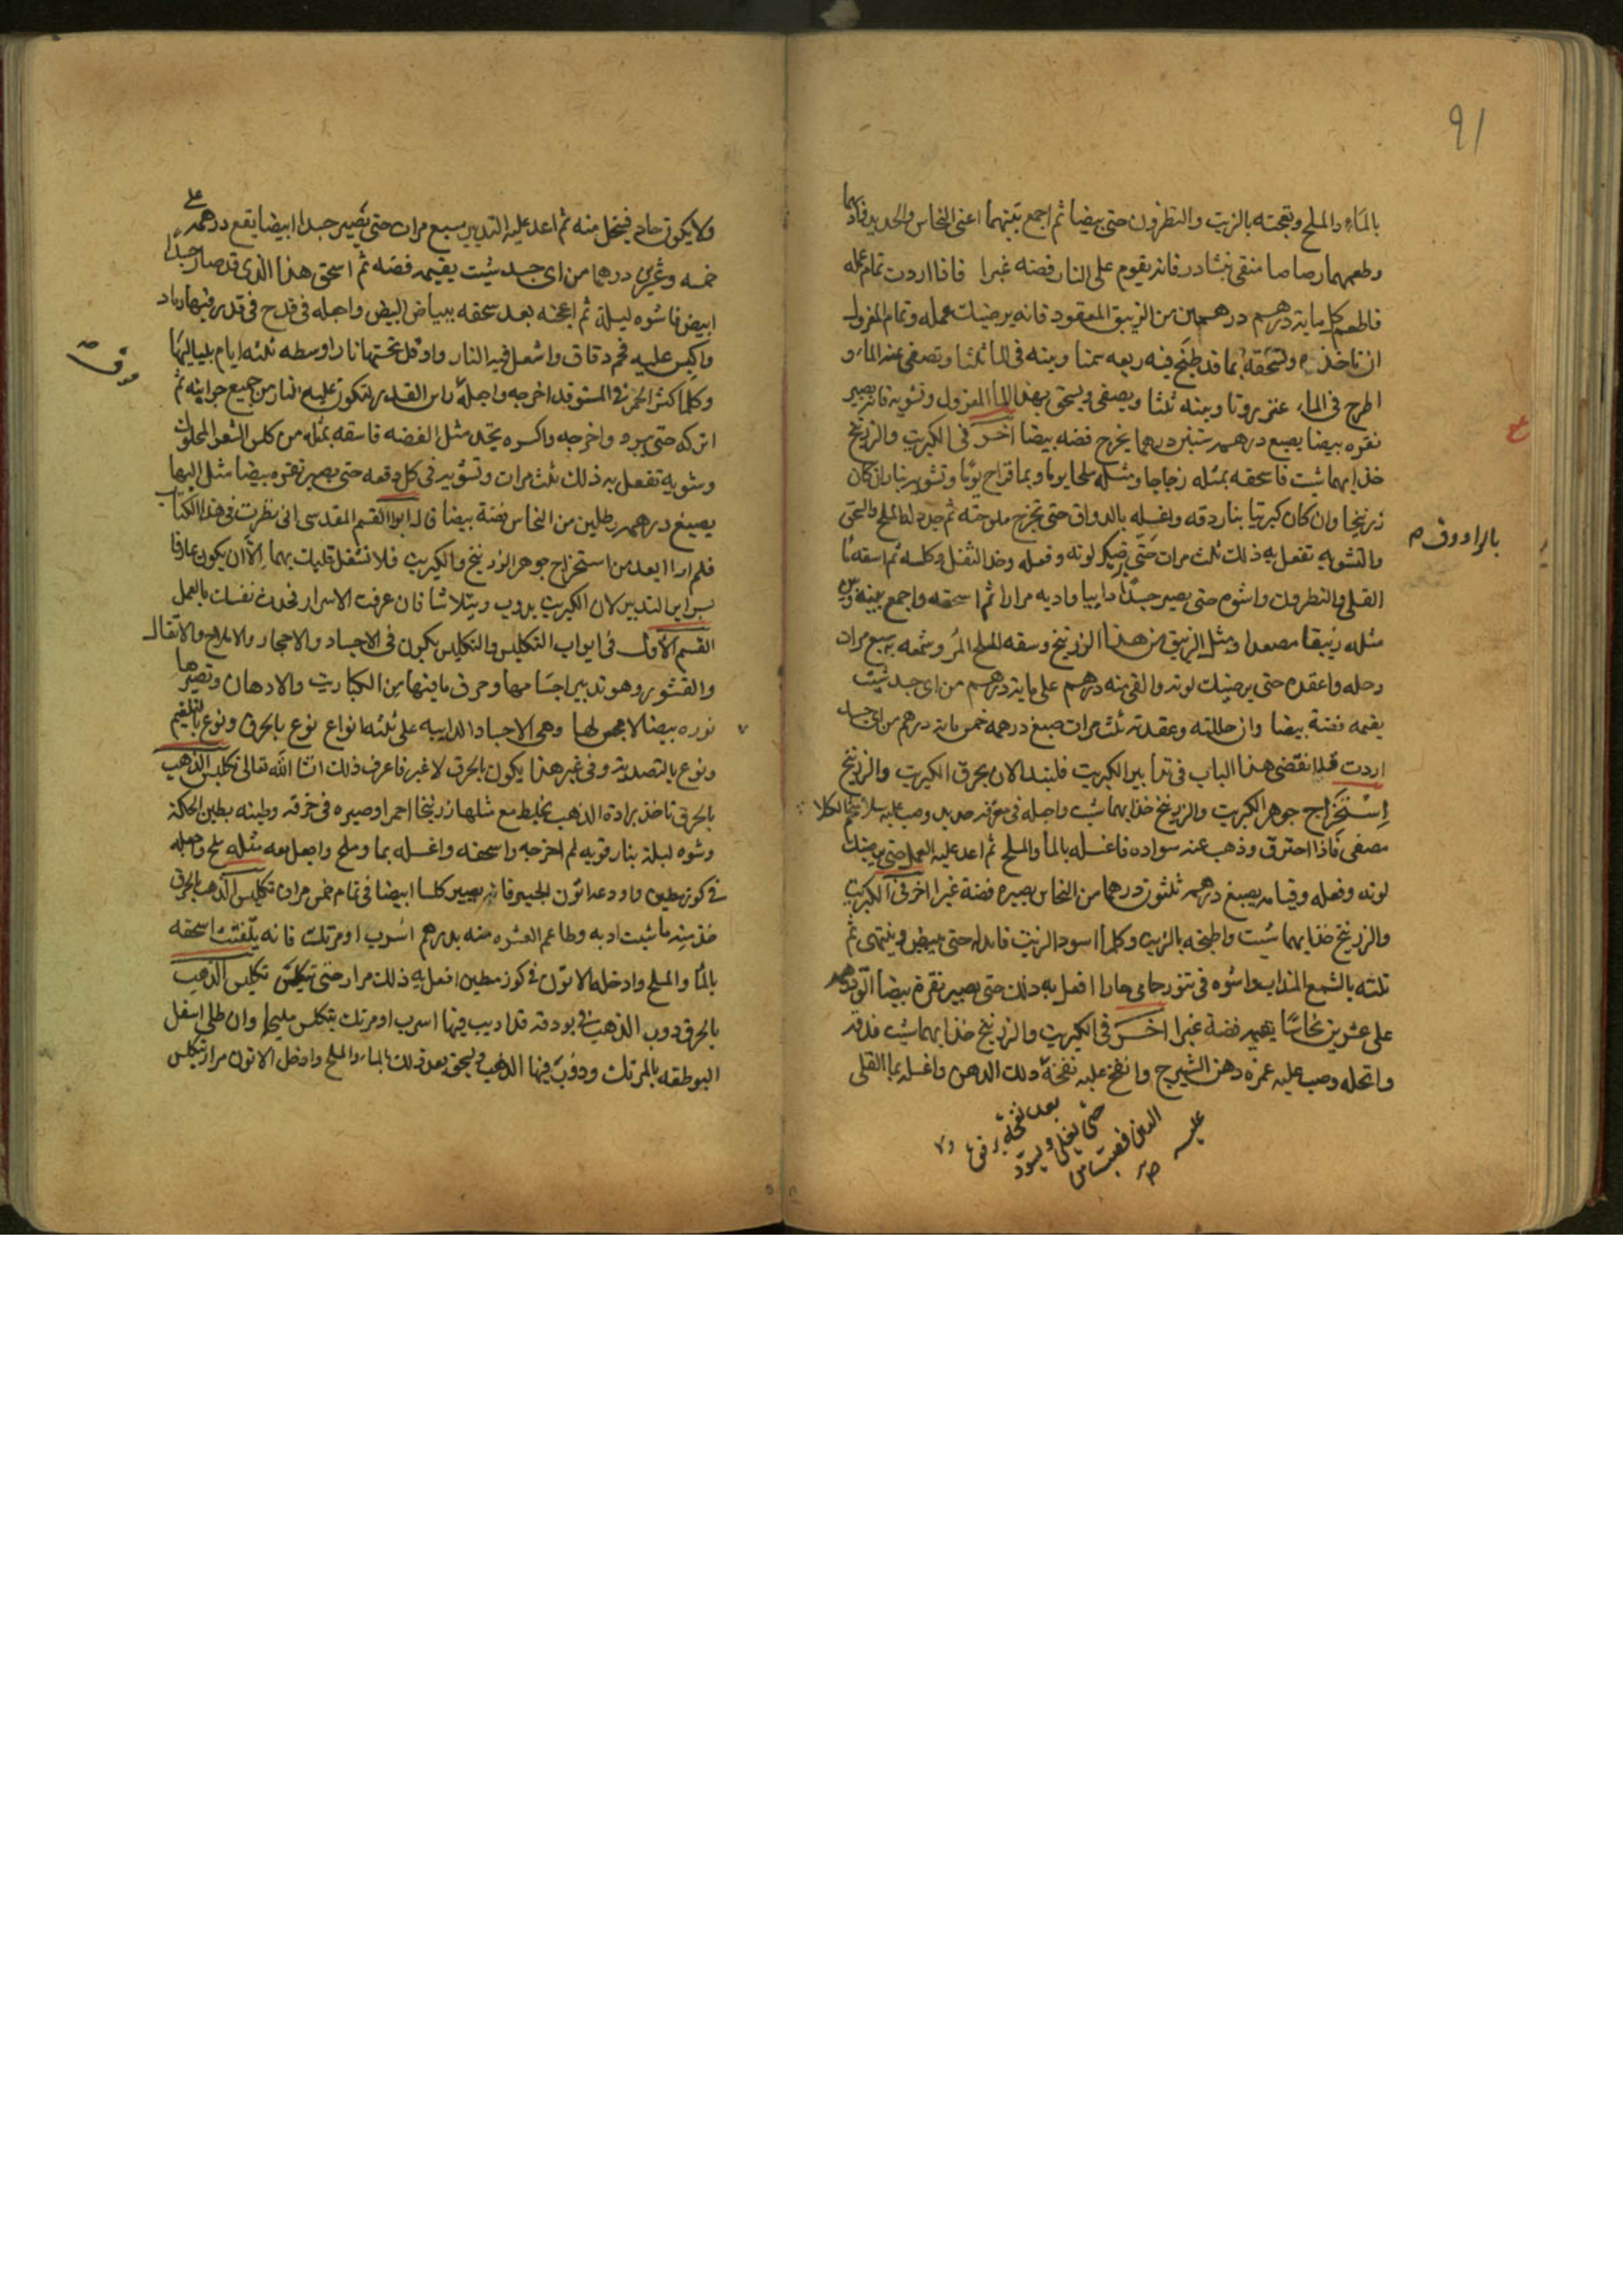 91
بالماء والملح وتعجنه بالزيت والنطرون حتى بيضا ثم اجمع بينهما اعنى النحاس والحديد
وطعمهما رصاصا منقى بنشادر فانه يقوم على النار فضه غبرا فاذا اردت تمام عمله
فاطعم كل ماية درهم درهمين من الزيبق المعقود فانه يرضيك عمله وتمام المغزول
ان تاخذه وتسحقه بما قد طبخ فيه ربعه سمنا وبيته فى الما ثلثا وتصفى عنه الماء و
اطرح فى الماء عنزروتا وبيته ثلثا ويصفى ويسحق بهذا الما المغزول وتشويه فانه يصير
نقره بيضا يصبغ درهمه ستين درهما يخرج فضه بيضا اخر فى الكبريت والزرنيخ
خذ ايهما شئت فاسحقه بمثله زجاجا ومثله ملحا يوما وبما قراح يوما وتشويه بنار ان كان
زرنيخا وان كان كبريتا بنار دقه واغسله بالدواق حتى تخرج ملوحته ثم جدد له الملح والسحق
بالراووق
والتشويه تفعل به ذلك ثلث مرات حتى يرضيك لونه وفعله وخذ الثفل وكلسه ثم اسقه ما
القلى والنطرون واشوه حتى يصير جسدا دايبا وادبه مرارا ثم اسحقه واجمع بينه وبين
مثله زيبقا مصعدا ومثل الزيبق من هذا الزرنيخ وسقه الملح المر وشمعه به سبع مرات
وحله واعقده حتى يرضيك لونه والقى منه درهم على ماية درهم من اى جسد شئت
يقيمه فضة بيضا وان حللته وعقدته ثلث مرات صبغ درهمه خمس ماية درهم من اى جسد
اردت قد انقضى هذا الباب فى تدابير الكبريت فلنبدا الان بحرق الكبريت والزرنيخ
استخراج جوهر الكبريت والزرنيخ خذ ايهما شئت واجعله فى مغرفة حديد وصب عليه
مصفى فاذا احترق وذهب عنه سواده فاغسله بالماء والملح ثم اعد عليه العمل حتى يرضيك
لونه وفعله وقيامه يصبغ درهمه ثلثون درهما من النحاس يصيره فضة غبرا اخر فى الكبريت
والزرنيخ خذ ايهما شئت واطبخه بالزيت وكلما اسود الزيت فابدله حتى يبيض وينتهى ثم
تلته بالشمع المذاب واشوه فى تنور حامى حارا افعل به ذلك حتى يصير نقرة بيضا الق درهمه
على عشرين نحاسا يقيمه فضة غبرا اخر فى الكبريت والزرنيخ خذ ايهما شئت فدقه
وانخله وصب عليه غمره دهن الشيرج وانفخ عليه نفخة ذلك الدهن واغسله بما القلى
ولا يكون حام فينحل منه ثم اعد عليه التدبير سبع مرات حتى يصير جسدا ابيضا يقع درهمه على
خمسه وعشرين درهما من اى جسد شئت يقيمه فضه ثم اسحق هذا الذى قد صار جسدا
ابيض فاشوه ليلة ثم اعجنه بعد سحقه ببياض البيض واجعله فى قدح فى قدر فيها رماد
واكبس عليه فحم دقاق واشعل فيه النار واوقد تحتها نارا وسطه ثلثه ايام بلياليها
وكلما كثر الجمر فى المستوقد اخرجه واجعله راس القدر لتكون عليه النار من جميع جوانبه ثم
اتركه حتى يبرد واخرجه واكسره تجده مثل الفضه فاسقه بمثله من كلس الشعر المحلول
وشويه تفعل به ذلك ثلث مرات وتشويه فى كل دفعه حتى يصير نقره بيضا مثل المها
يصبغ درهمه رطلين من النحاس فضة بيضا قال ابوا القسم المقدسى انى نظرت فى هذا الكتاب
فلم ارا ابعد من استخراج جوهر الزرنيخ والكبريت فلا تشغل قلبك بهما الا ان يكون عارفا
بسراير التدبير لان الكبريت يدوب ويتلاشا فان عرفت الاسرار فخذ نفسك بالعمل
القسم الاول فى ابواب التكليس والتكليس يكون فى الاجساد والاحجار والاملاح والاثقال
والقشور وهو تدبير اجسامها وحرق ما فيها من الكباريت والادهان وتصيرها
نوره بيضا لا مجس لها وهى الاجساد الدايبه على ثلثه انواع نوع بالحرق ونوع بالتلغيم
ونوع بالتصديه وفى غير هذا يكون بالحرق لا غير فاعرف ذلك انشا الله تعالى تكليس الذهب
بالحرق تاخذ برادة الذهب يخلط مع مثلها زرنيخا احمر او صيره فى خرقه وطينه بطين الحكمة
وشوه ليلة بنار قويه ثم اخرجه واسحقه واغسله بما وملح واجعل معه مثله ملح واجعله
فى كوز مطين واودعه اتون الجير فانه يصير كلسا ابيضا فى تمام خمس مرات تكليس الذهب بالحرق
خذ منه ما شئت ادبه وطاعم العشره منه بدرهم اسرب او مرتك فانه يتفتت اسحقه
بالما والملح وادخله الاتون فى كوز مطين افعل به ذلك مرار حتى يتكلس تكليس الذهب
بالحرق دوب الذهب فى بودقه قد اديب فيها اسرب او مرتك يتكلس مليحا وان طلى اسفل
البوطقه بالمرتك ودوب فيها الذهب ويسحق بعد ذلك بالماء والملح وادخل الاتون مرار يتكلس